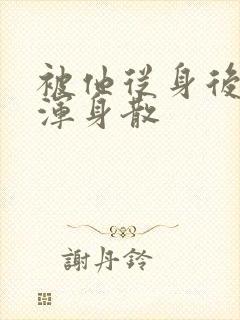 被他从身後
渾身散
謝丹鈴